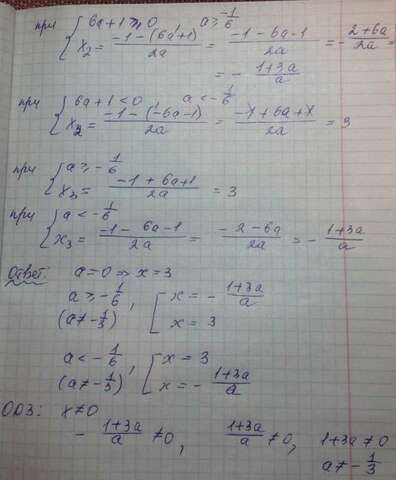 при { 6a+1 ⩾ 0, a ⩾ -1/6
x₂ = (-1-(6a+1))/2a = (-1-6a-1)/2a = -(2+6a)/2a =
= -(1+3a)/a
при { 6a+1 < 0, a < -1/6
x₂ = (-1-(-6a-1))/2a = (-1+6a+1)/2a = 3
при { a ⩾ -1/6
x₃ = (-1+6a+1)/2a = 3
при { a < -1/6
x₃ = (-1-6a-1)/2a = (-2-6a)/2a = -(1+3a)/a
Ответ: a=0 => x=3
a ⩾ -1/6, [ x = -(1+3a)/a
(a≠-1/3) x = 3
a < -1/6, [ x = 3
(a≠-1/3) x = -(1+3a)/a
ОДЗ: x≠0
-(1+3a)/a ≠0, (1+3a)/a ≠0, 1+3a ≠0
a≠-1/3